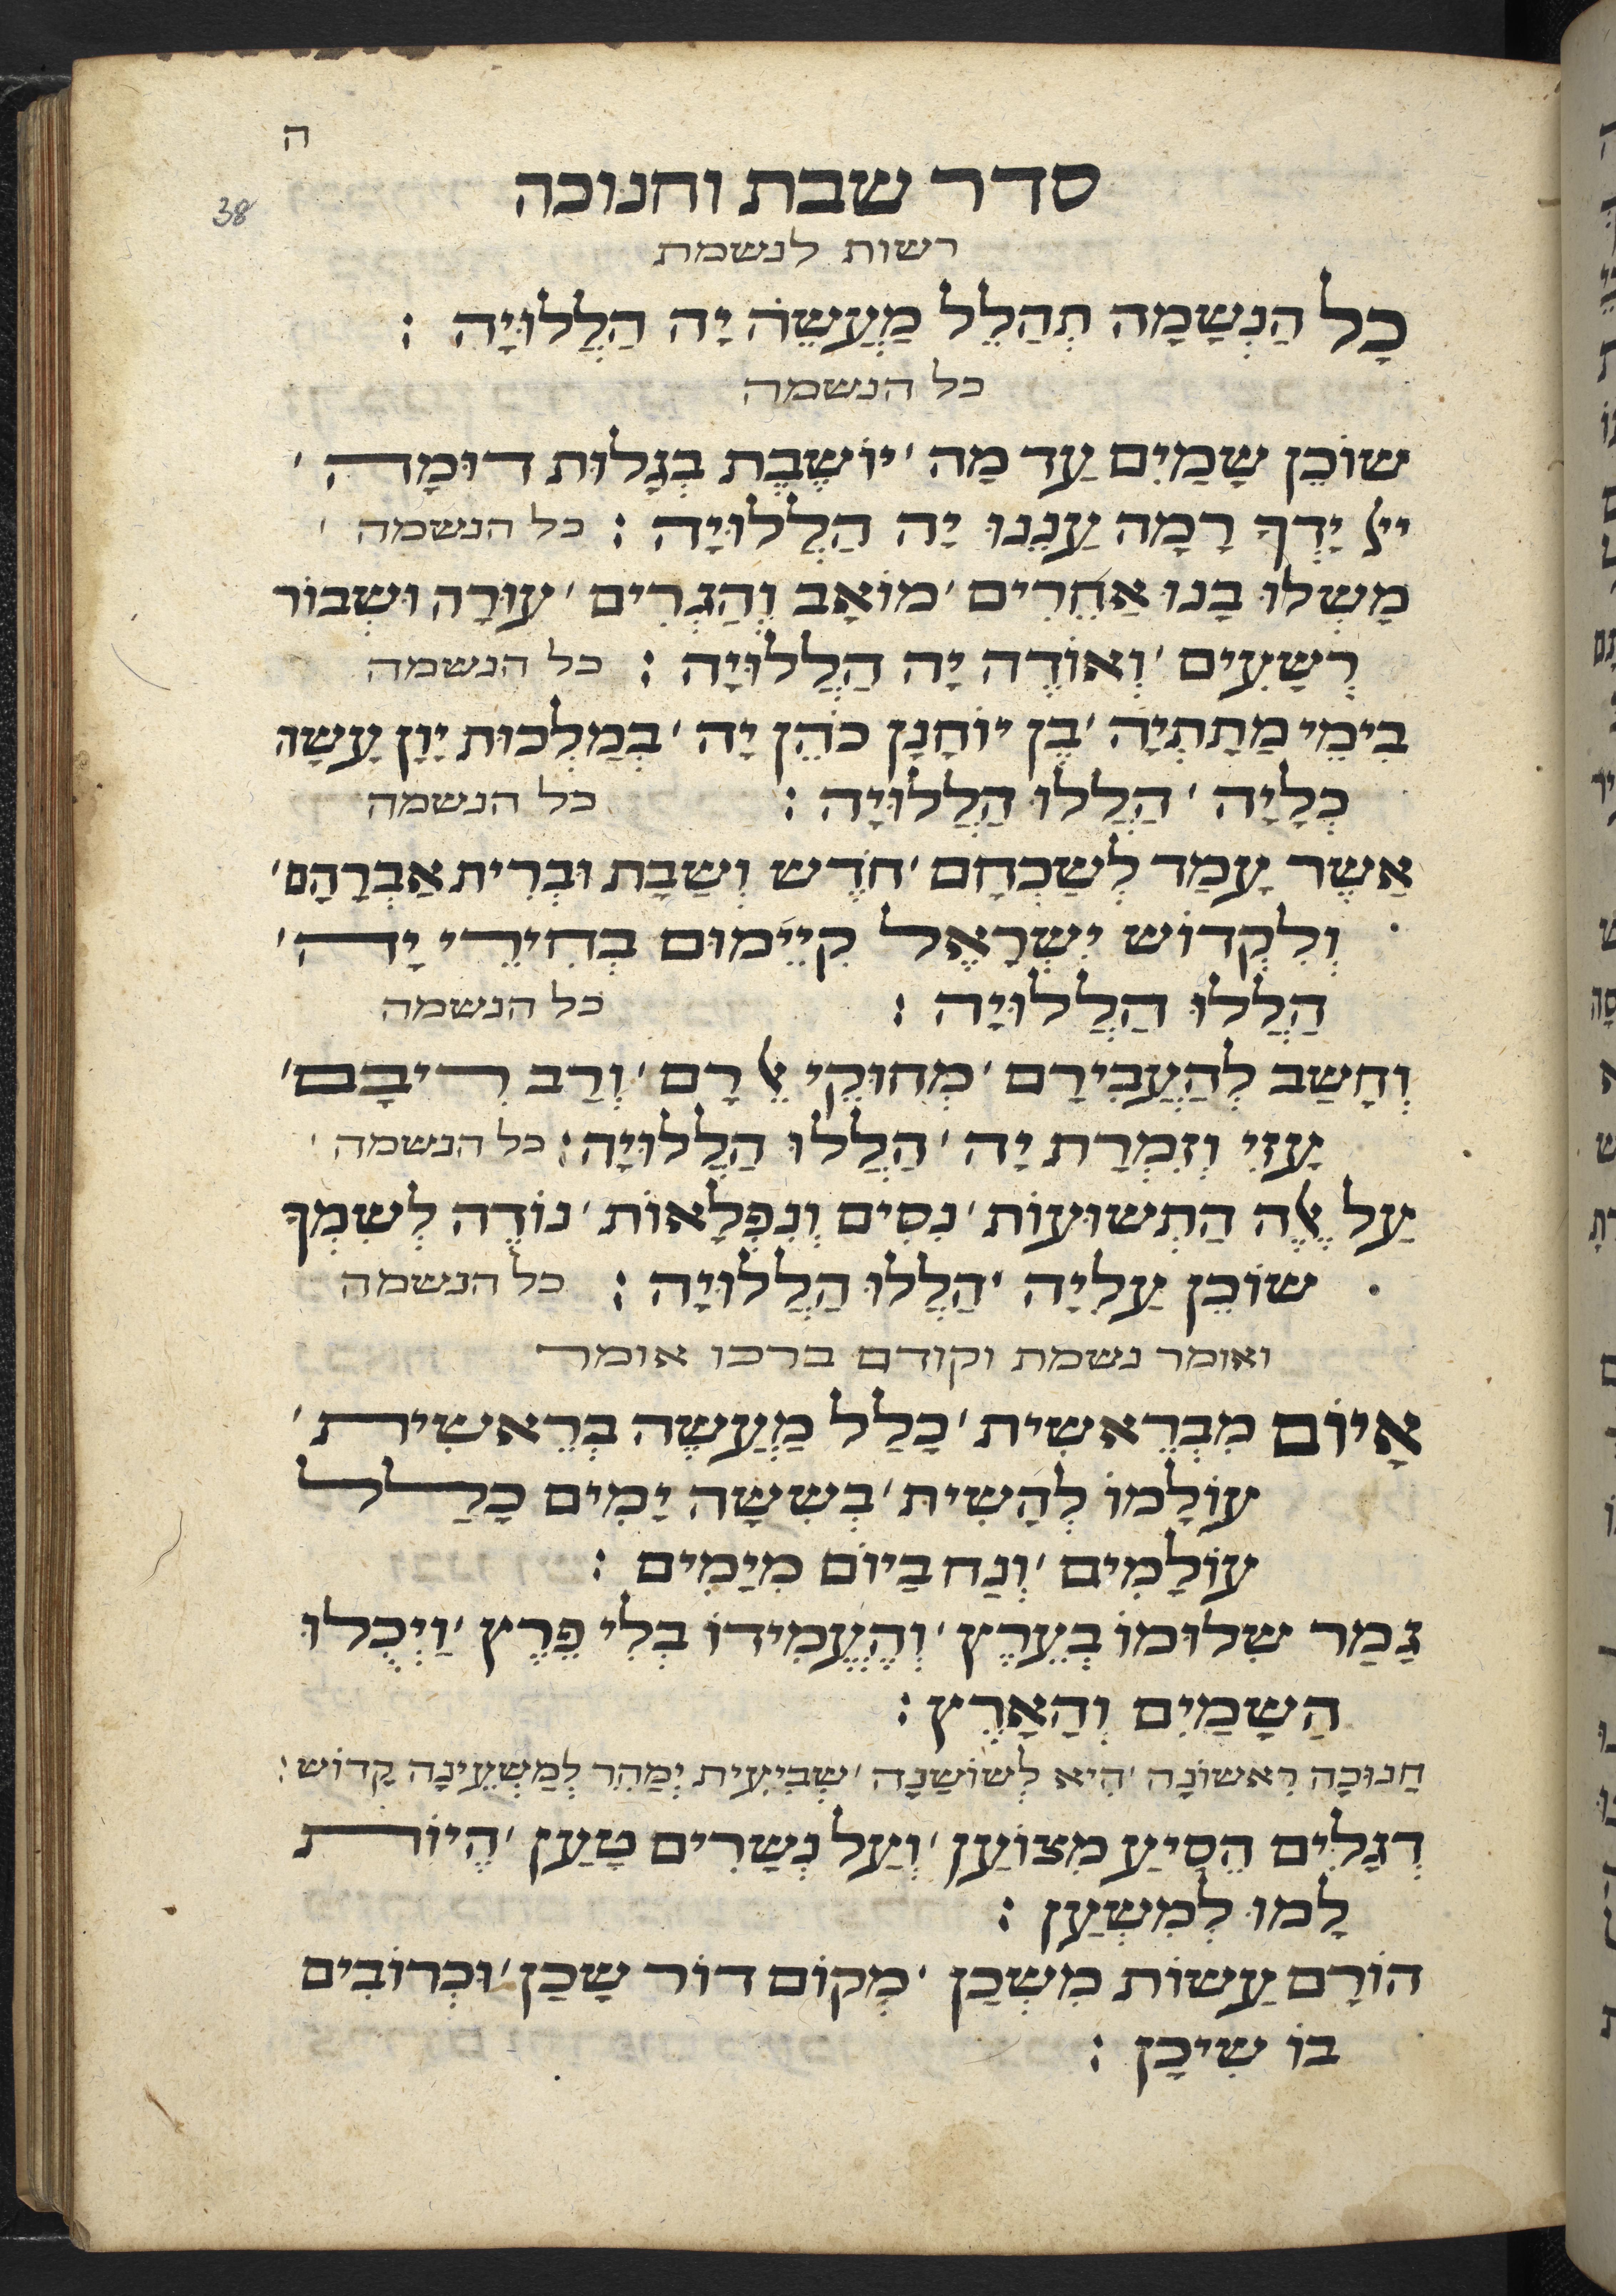 ה
סדר שבת וחנוכה
38
רשות לנשמת
כָל הַנְשָמָה תְהַלֵל מַעֲשֵה יָה הַלֲלוּיָה :
כל הנשמה
שוֹכֵן שָמַיִם עַד מַה ׳ יוֹשֶבֶת בְגָלוּת דוּמָה ׳
יﭏ יָדְךָ רָמָה עַנֵנוּ יָה הַלֲלוּיָה : כל הנשמה ׳
מָשְלוּ בָנוּ אַחֵרִים ׳ מוֹאָב וְהַגְרִים ׳ עוּרָה וּשְבוֹר
רְשָעִים ׳ וְאוֹדֶה יָה הַלֲלוּיָה : כל הנשמה
בִימֵי מַתָתְיָה ׳ בֶן יוֹחָנָן כֹהֵן יָה ׳ בְמַלְכוּת יָוָן עָשָו
כְלָיָה ׳ הַלֲלוּ הַלֲלוּיָה : כל הנשמה
אַשֶר עָמַד לְשַכְחָם ׳ חֹדֶש וְשַבָת וּבְרִית אַבְרָהָם ׳
וְלִקְדוֹש יִשְרָאֶל קִיֵימוּם בְחִירֵי יָה ׳
הַלֲלוּ הַלֲלוּיָה : כל הנשמה
וְחָשַב לְהַעֲבִירָם ׳ מְחוּקֵי ﭏ רָם ׳ וְרַב רִיבָם ׳
עָזִי וְזִמְרָת יָה ׳ הַלֲלוּ הַלֲלוּיָה : כל הנשמה ׳
עַל ﭏֶה הַתְשוּעוֹת ׳ נִסִים וְנִפְלָאוֹת ׳ נוֹדֶה לְשִמְךָ
שוֹכֵן עַלִיָה ׳ הַלֲלוּ הַלֲלוּיָה : כל הנשמה
ואומר נשמת וקודם ברכו אומר
אָיוֹם מִבְרֵאשִית ׳ כָלַל מַעֲשֶה בְרֵאשִית ׳
עוֹלָמוֹ לְהָשִית ׳ בְשִשָה יָמִים כָלַל
עוֹלָמִים ׳ וְנַח בַיוֹם מִיָמִים :
גָמַר שִלוּמוֹ בְעֵרֶץ ׳ וְהֶעֱמִידוֹ בְלִי פֶרֶץ ׳ וַיְכֻלוּ
הַשָמַיִם וְהָאָרֶץ :
חַנוּכָה רִאשוֹנָה ׳ הִיא לְשוֹשַנָה ׳ שְבִיעִית יְמַהֵר לְמַשְעֵינָה קָדוֹש :
דְגָלִים הֵסִיעַ מִצוֹעַן ׳ וְעַל נְשָרִים טָעַן ׳ הֶיוֹת
לָמוּ לְמִשְעַן :
הוֹרָם עַשוֹת מִשְכַן ׳ מְקוֹם דוֹר שָכַן ׳ וּכְרוֹבִים
בוֹ שִיכָן :